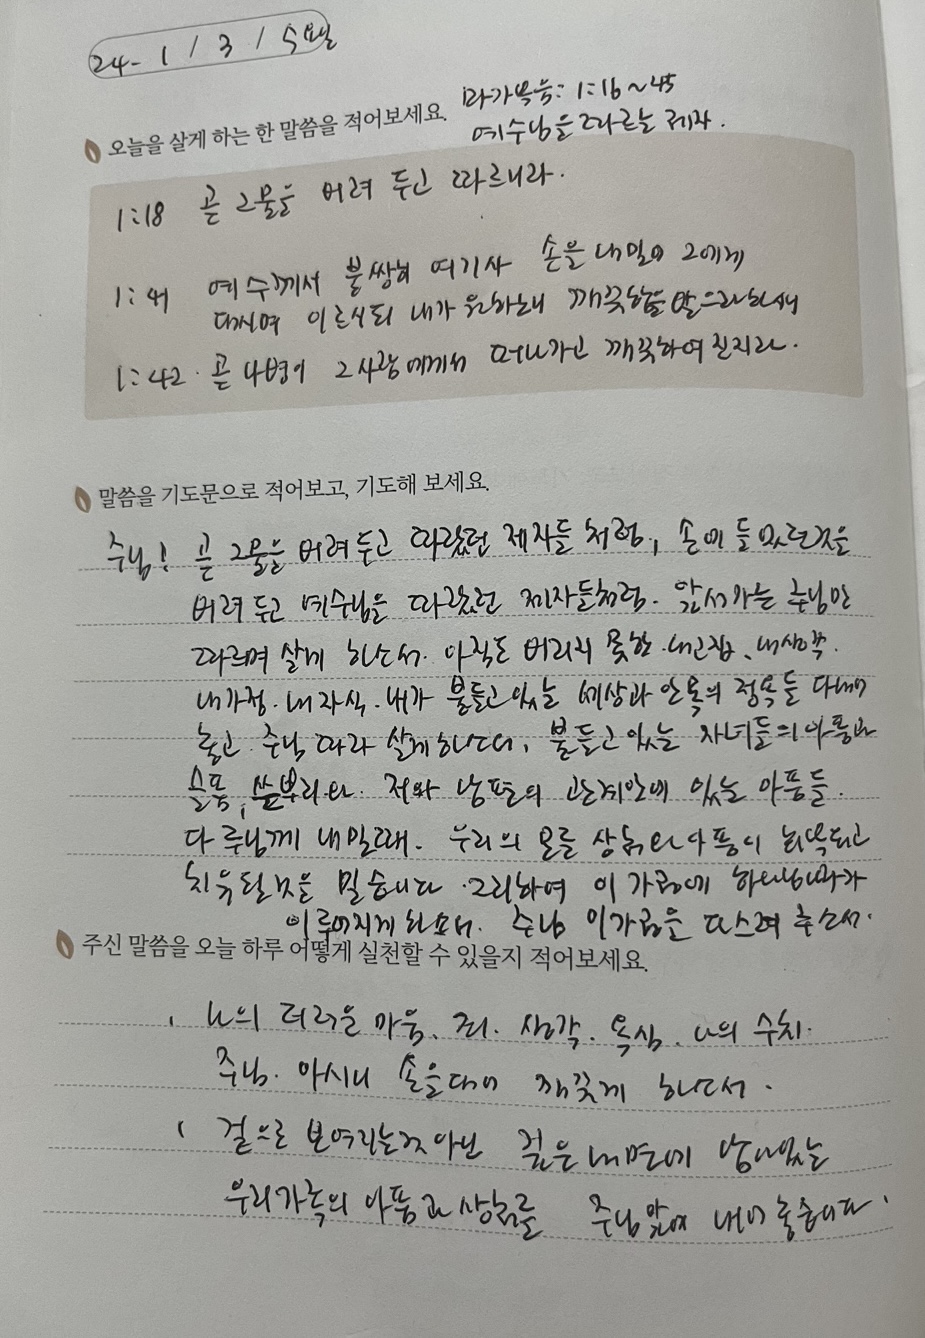 24- 1 / 3 / 수요일
마가복음: 1:16~45
오늘을 살게 하는 한 말씀을 적어보세요.
예수님을 따르는 제자.
1:18 곧 그물을 버려 두고 따르니라.
1:41 예수께서 불쌍히 여기사 손을 내밀어 그에게
대시며 이르시되 내가 원하노니 깨끗함을 받으라하시매
1:42. 곧 나병이 그사람에게서 떠나가고 깨끗하여진지라.
말씀을 기도문으로 적어보고, 기도해 보세요.
주님! 곧 그물을 버려두고 따랐던 제자들 처럼, 손에 들었던것을
버려두고 예수님을 따랐던 제자들처럼. 앞서가는 주님만
따르며 살게 하소서. 아직도 버리지 못한. 내고집, 내생각.
내가정. 내자식. 내가 붙들고있는 세상과 안목의 정욕들 다내어
놓고. 주님 따라 살게하소서, 붙들고있는 자녀들의아픔과
슬픔, 쓴뿌리와. 저와 남편의 관계안에 있는 아픔들.
다 주님께 내밀때. 우리의 모든 상처와아픔이 회복되고
치유될것을 믿습니다. 그리하여 이 가정에 하나님나라가
이루어지게하소서. 주님 이가정을 다스려 주소서.
주신 말씀을 오늘 하루 어떻게 실천할 수 있을지 적어보세요.
, 나의 더러운 마음, 죄. 생각. 욕심. 나의 수치.
주님. 아시니 손을대어 깨끗게 하소서.
, 겉으로 보여지는것 아닌 깊은내면에 남아있는
우리가족의 아픔과상처를 주님앞에 내어놓습니다.